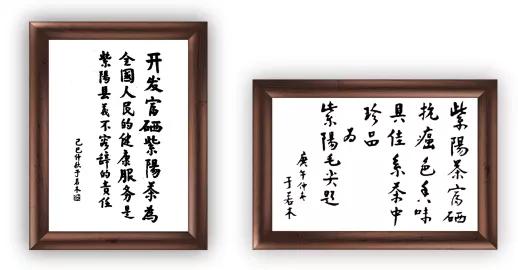 开发富硒紫陽茶為
全國人民的健康服务是
紫陽县義不容辞的責任
己巳仲秋于若木
紫陽茶富硒
抗癌色香味
具佳系茶中
珍品
为
紫陽毛尖題
庚午仲冬
于若木